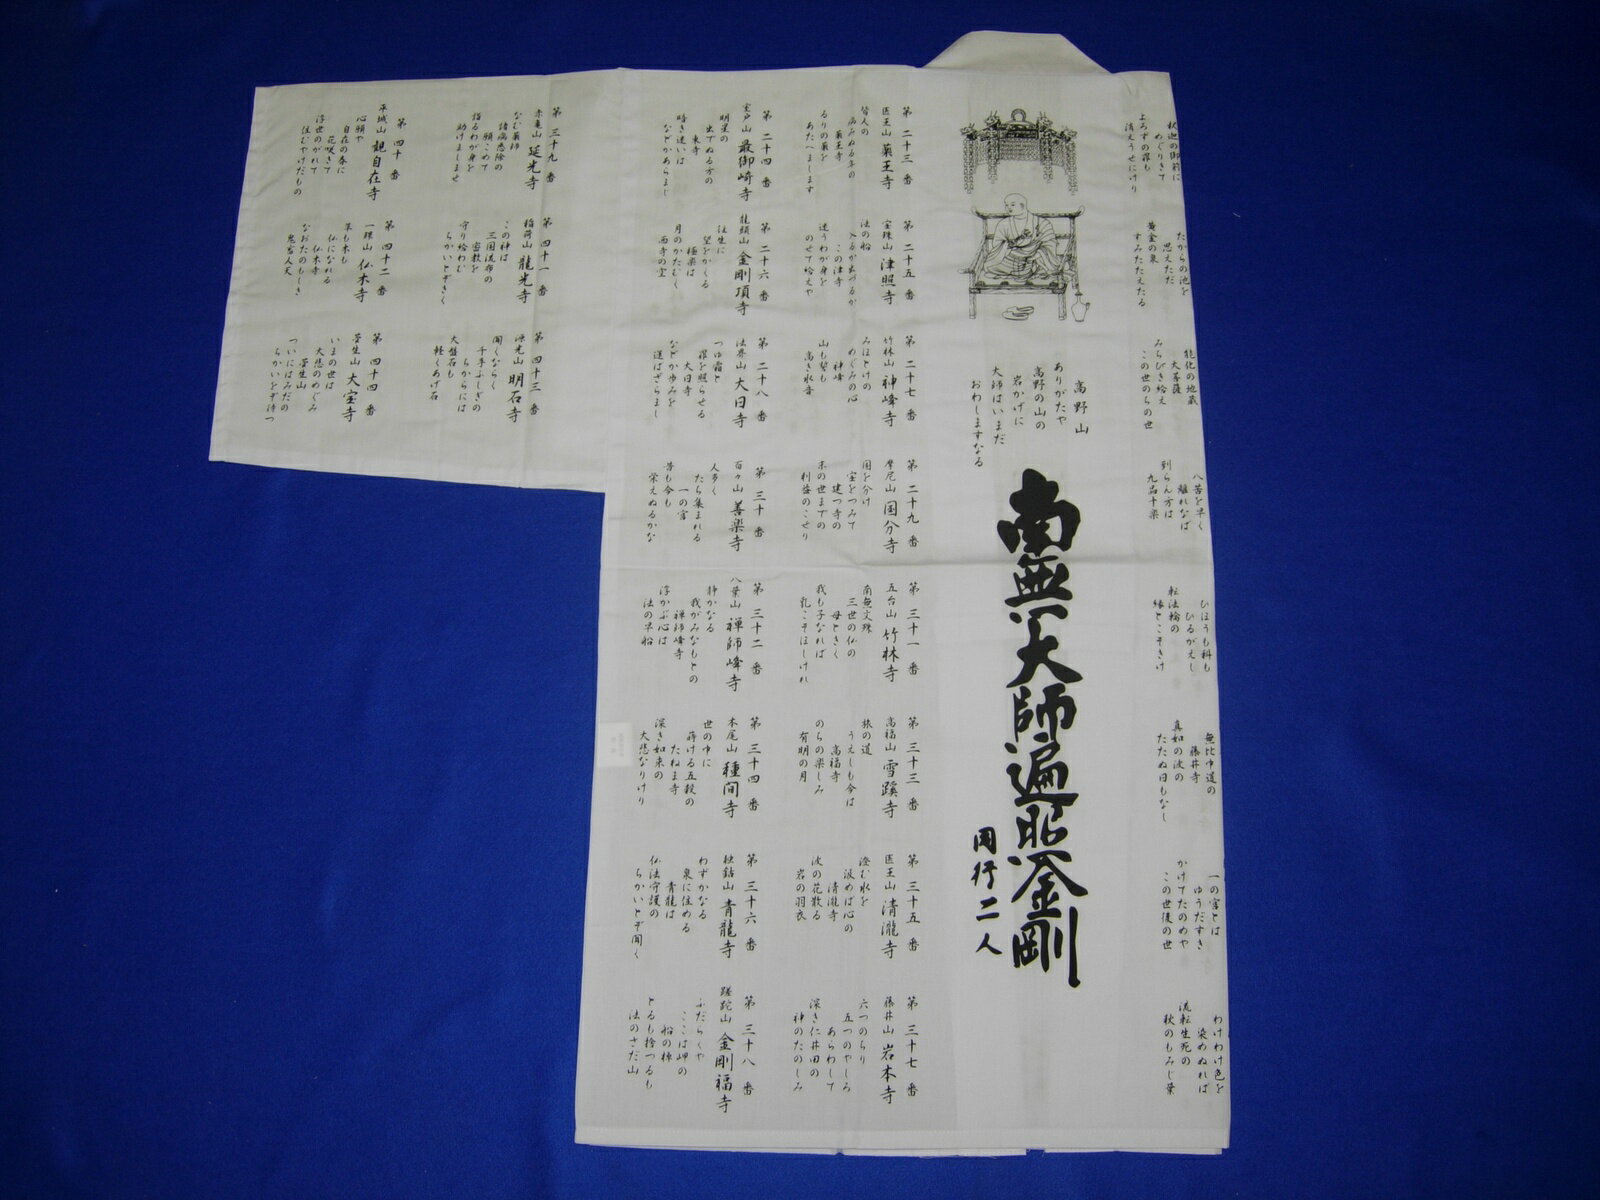 釈迦の御前に
めぐりきて
よろずの罪も
消えうせにけり
たからの池を
思えただ
黄金の泉
すみたたえたる
能化の地蔵
大菩薩
みちびき給え
この世のちの世
八苦を早く
離れなば
到らん方は
九品十楽
ひほうも科も
ひるがえし
転法輪の
縁とこそきけ
無比中道の
藤井寺
真如の波の
たたぬ日もなし
一の宮とは
ゆうだすき
かけてたのめや
この世後の世
わけわけ色を
染めぬれば
流転生死の
秋のもみじ葉
高野山
ありがたや
高野の山の
岩かげに
大師はいまだ
おわしますなる
南無大師遍照金剛
同行二人
第二十三番
医王山 薬王寺
皆人の
病みぬる年の
薬王寺
るりの薬を
あたへまします
第二十五番
宝珠山 津照寺
法の船
入るか出づるか
この津寺
迷うわが身を
のせて給えや
第二十七番
竹林山 神峰寺
みほとけの
めぐみの心
神峰
山も誓も
高き水音
第二十九番
摩尼山 国分寺
国を分け
宝をつみて
建つ寺の
末の世までの
利益のこせり
第三十一番
五台山 竹林寺
南無文殊
三世の仏の
母ときく
我も子なれば
乳こそほしけれ
第三十三番
高福山 雪蹊寺
旅の道
うえしも今は
高福寺
のちの楽しみ
有明の月
第三十五番
医王山 清瀧寺
澄む水を
汲めば心の
清瀧寺
波の花散る
岩の羽衣
第三十七番
藤井山 岩本寺
六つのちり
五つのやしろ
あらわして
深き仁井田の
神のたのしみ
第二十四番
室戸山 最御崎寺
明星の
出でぬる方の
東寺
暗き迷いは
などかあらまじ
第二十六番
龍頭山 金剛頂寺
往生に
望をかくる
極楽は
月のかたむく
西寺の空
第二十八番
法界山 大日寺
つゆ霜と
罪を照らせる
大日寺
などか歩みを
運ばざらまし
第三十番
百々山 善楽寺
人多く
たち集まれる
一の宮
昔も今も
栄えぬるかな
第三十二番
八葉山 禅師峰寺
静かなる
我がみなもとの
禅師峰寺
浮かぶ心は
法の早船
第三十四番
本尾山 種間寺
世の中に
蒔ける五穀の
たねま寺
深き如来の
大悲なりけり
第三十六番
独鈷山 青龍寺
わずかなる
泉に住める
青龍は
仏法守護の
ちかいとぞ聞く
第三十八番
蹉跎山 金剛福寺
ふだらくや
ここは岬の
船の棹
とるも捨つるも
法のさだ山
第三十九番
赤亀山 延光寺
なむ薬師
諸病悉除の
願こめて
詣るわが身を
助けましませ
第四十一番
稲荷山 龍光寺
この神は
三国流布の
密教を
守り給わむ
ちかいとぞきく
第四十三番
源光山 明石寺
聞くならく
千手ふしぎの
ちからには
大盤石も
軽くあげ石
第四十番
平城山 観自在寺
心願や
自在の春に
花咲きて
浮世のがれて
住むやけだもの
第四十二番
一𤦲山 仏木寺
草も木も
仏になれる
仏木寺
なおたのもしき
鬼畜人天
第四十四番
菅生山 大宝寺
いまの世は
大悲のめぐみ
菅生山
ついにはみだの
ちかいをぞ待つ